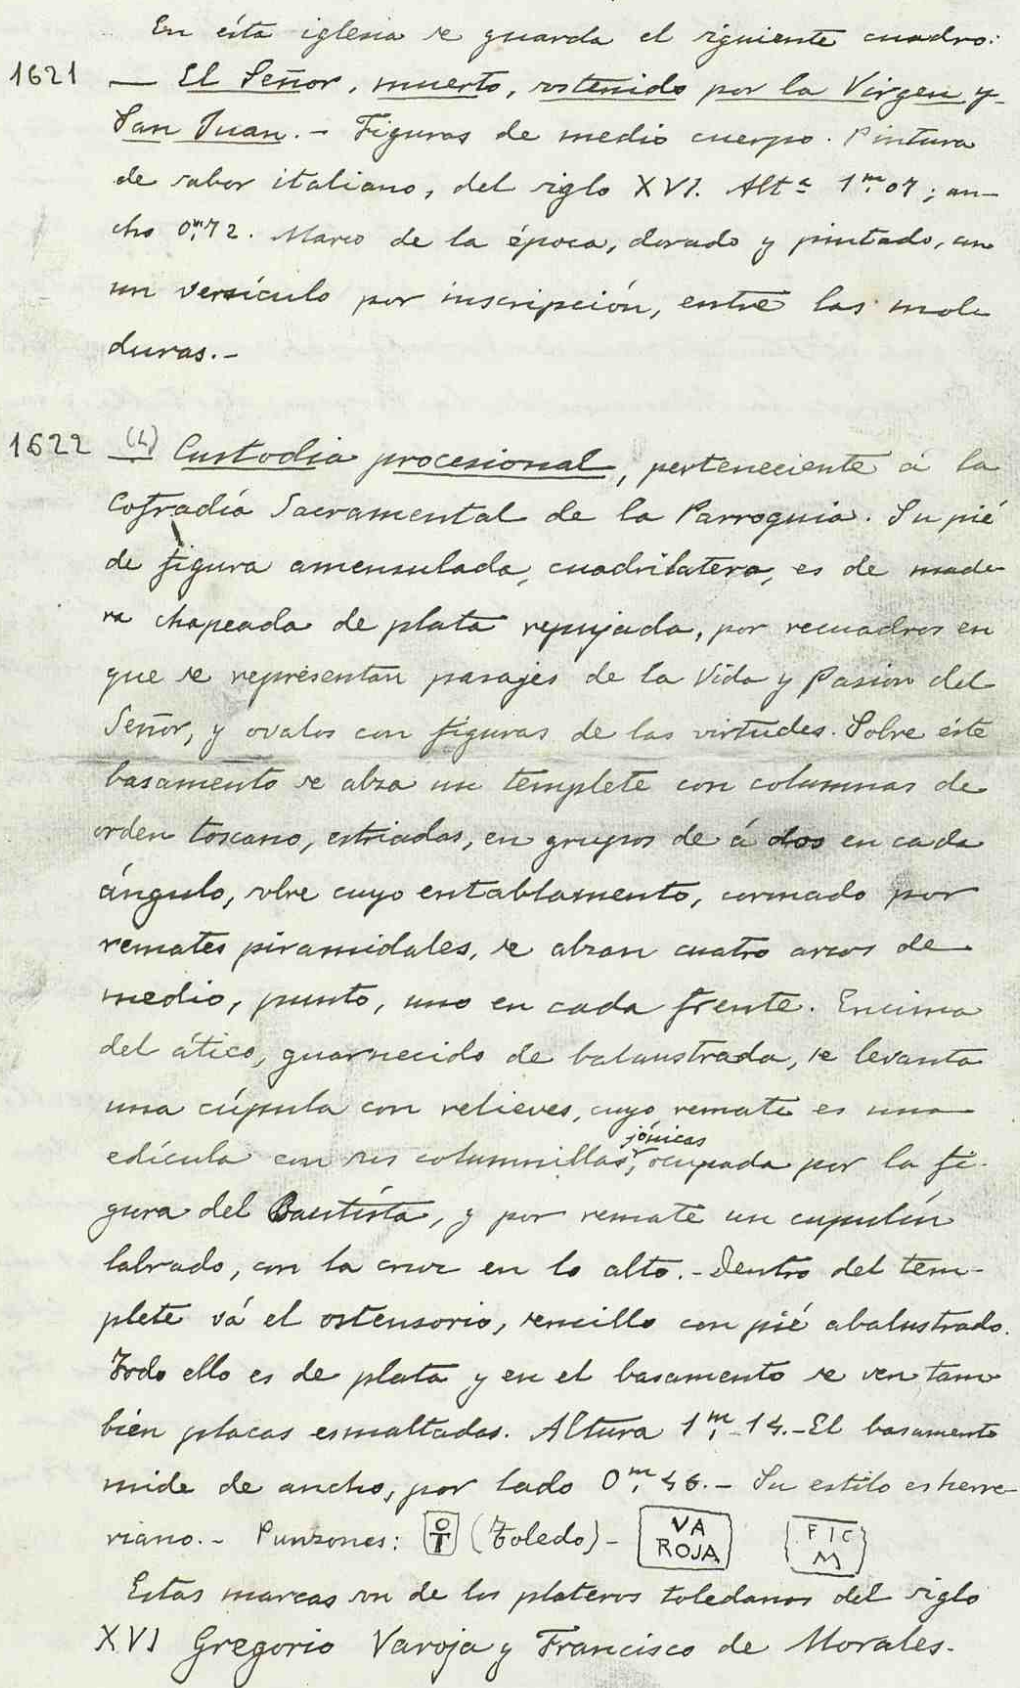 En ésta iglesia se guarda el siguiente cuadro:
1621 — El Señor, muerto, sostenido por la Virgen y
San Juan. - Figuras de medio cuerpo. Pintura
de sabor italiano, del siglo XVI. Altª 1,m07; an-
cho 0,m72. Marco de la época, dorado y pintado, con
un versículo por inscripción, entre las mol-
duras.-
1622 (L) Custodia procesional, perteneciente á la
Cofradía Sacramental de la Parroquia. Su pié
de figura amensulada, cuadrilatera, es de made-
ra chapeada de plata repujada, por recuadros en
que se representan pasajes de la Vida y Pasion del
Señor, y ovalos con figuras de las virtudes. Sobre éste
basamento se alza un templete con columnas de
orden toscano, estriadas, en grupos de á dos en cada
ángulo, sobre cuyo entablamento, cornado por
remates piramidales, se alzan cuatro arcos de
medio, punto, uno en cada frente. Encima
del ático, guarnecido de balaustrada, se levanta
una cúpula con relieves, cuyo remate es una
edícula con sus columnillas jónicas, ocupada por la fi-
gura del Bautista, y por remate un cupulín
labrado, con la cruz en lo alto.- Dentro del tem-
plete vá el ostensorio, sencillo con pié abalustrado.
Todo ello es de plata y en el basamento se ven tam-
bién placas esmaltadas. Altura 1,m 14.- El basamento
mide de ancho, por lado 0,m 46.- Su estilo es herre-
riano.- Punzones: T (Toledo) - VA ROJA FIC M
Estas marcas son de los plateros toledanos del siglo
XVI Gregorio Varoja y Francisco de Morales.-